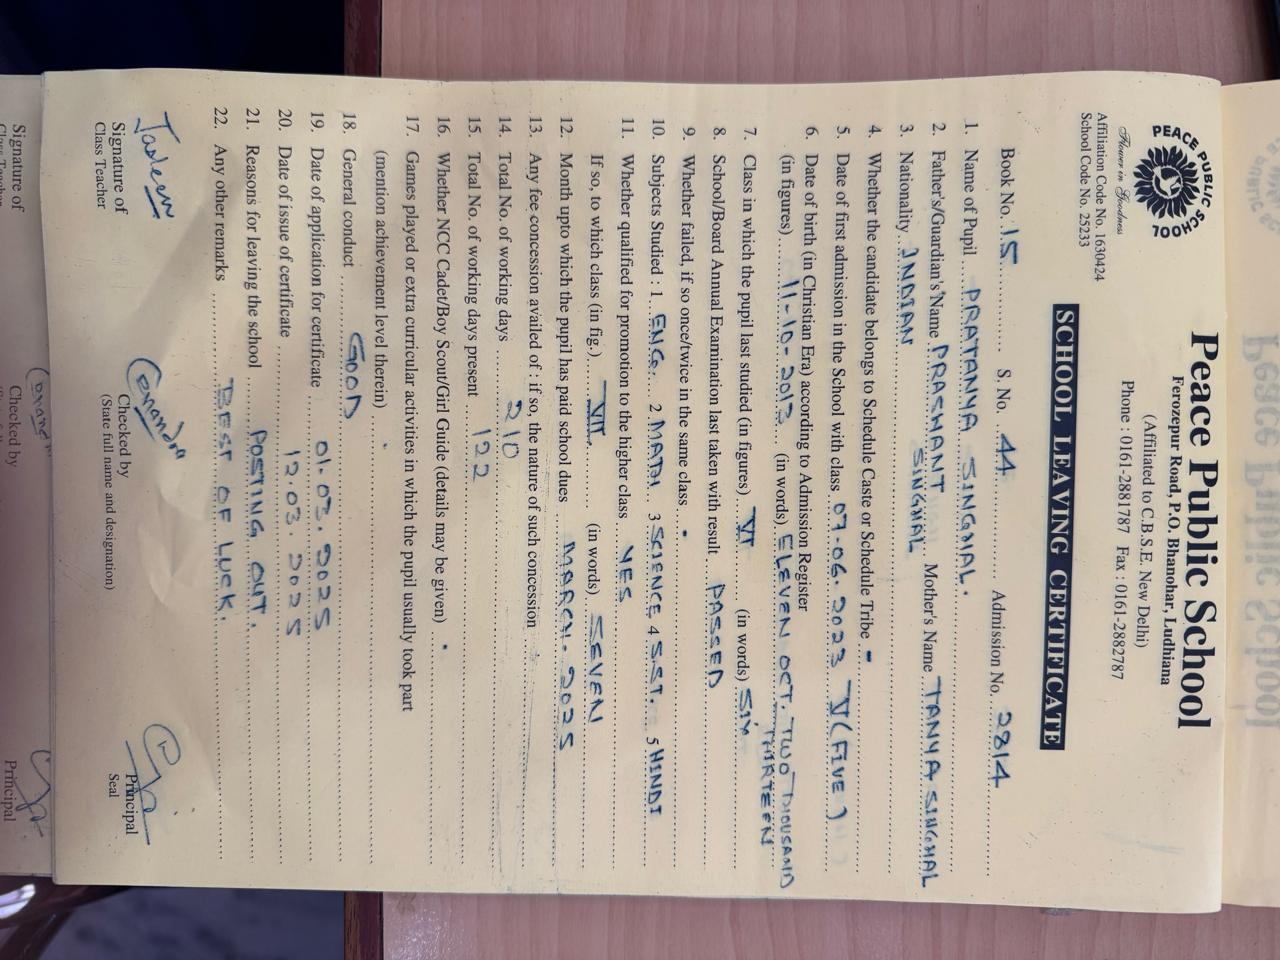 PEACE PUBLIC SCHOOL
Flower in Goodness
Affiliation Code No. 1630424
School Code No. 25233
Peace Public School
Ferozepur Road, P.O. Bhanohar, Ludhiana
(Affiliated to C.B.S.E. New Delhi)
Phone : 0161-2881787 Fax : 0161-2882787
SCHOOL LEAVING CERTIFICATE
Book No. 15 S. No. 44 Admission No. 2814
1. Name of Pupil PRATANYA SINGHAL.
2. Father's/Guardian's Name PRASHANT SINGHAL Mother's Name TANYA SINGHAL
3. Nationality INDIAN
4. Whether the candidate belongs to Schedule Caste or Schedule Tribe -
5. Date of first admission in the School with class 07.06.2023 V (FIVE)
6. Date of birth (in Christian Era) according to Admission Register
(in figures) 11-10-2013 (in words) ELEVEN OCT. TWO THOUSAND THIRTEEN
7. Class in which the pupil last studied (in figures) VI (in words) SIX
8. School/Board Annual Examination last taken with result PASSED
9. Whether failed, if so once/twice in the same class
10. Subjects Studied : 1. ENG. 2 MATH 3 SCIENCE 4 S.ST. 5 HINDI
11. Whether qualified for promotion to the higher class YES
If so, to which class (in fig.) VII (in words) SEVEN
12. Month upto which the pupil has paid school dues MARCH. 2025
13. Any fee concession availed of : if so, the nature of such concession
14. Total No. of working days 210
15. Total No. of working days present 122
16. Whether NCC Cadet/Boy Scout/Girl Guide (details may be given)
17. Games played or extra curricular activities in which the pupil usually took part
(mention achievement level therein)
18. General conduct GOOD
19. Date of application for certificate 01.03.2025
20. Date of issue of certificate 12.03.2025
21. Reasons for leaving the school POSTING OUT.
22. Any other remarks BEST OF LUCK.
Signature of
Class Teacher
Checked by
(State full name and designation)
Principal
Seal
Signature of
Class Teacher
Checked by
Principal